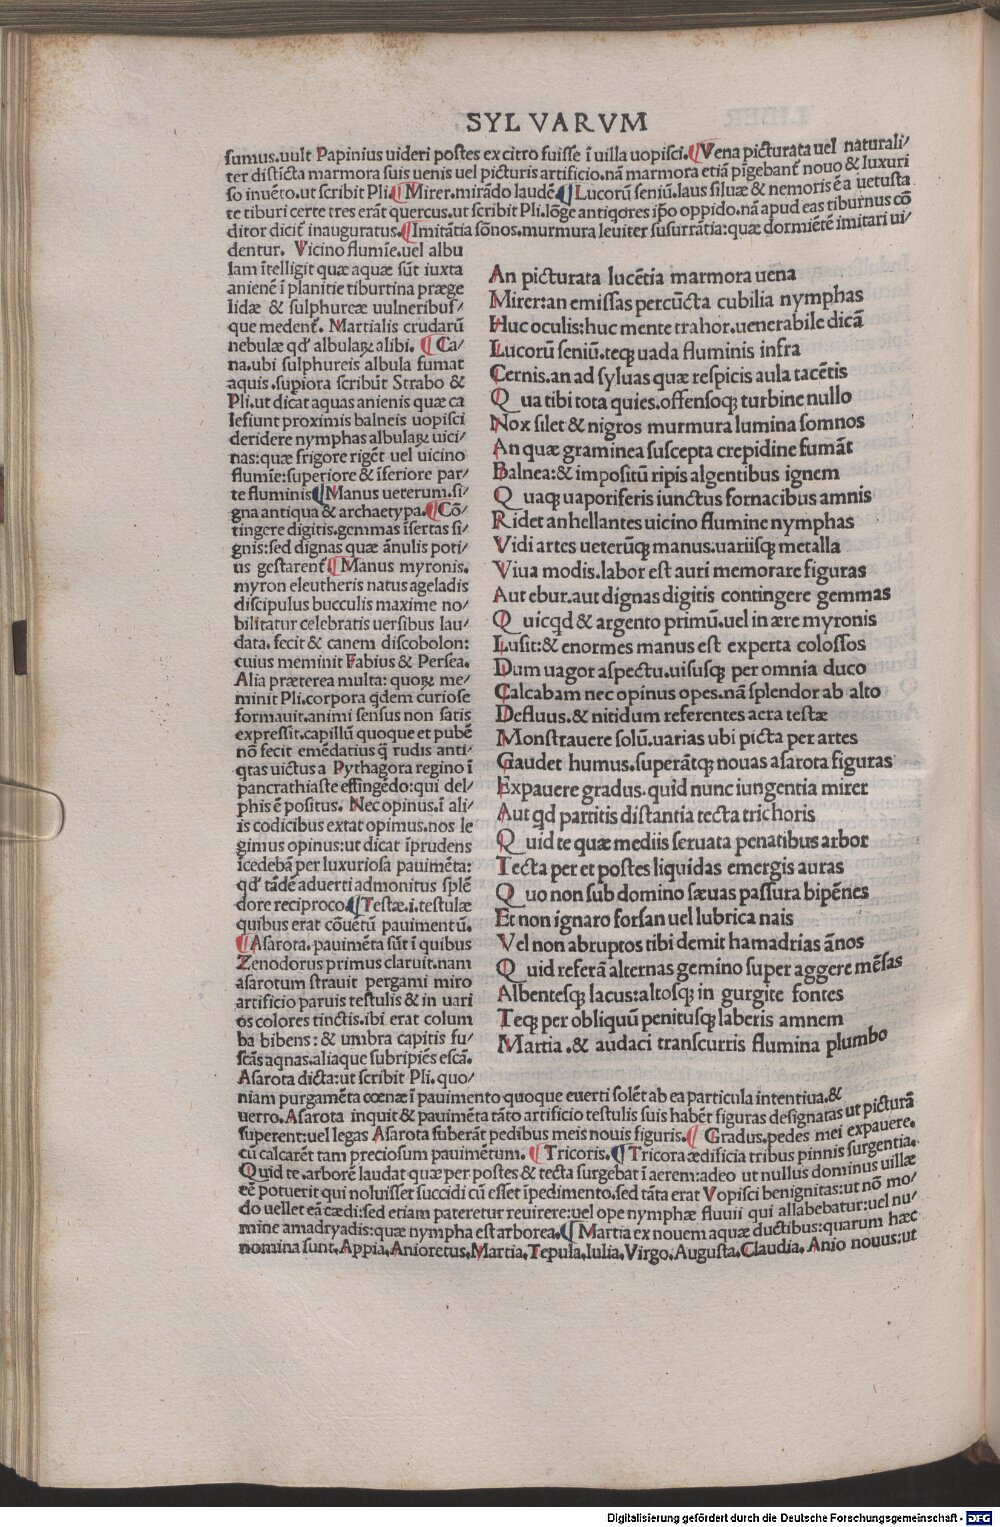 SYLVARVM
sumus.uult Papinius uideri postes ex citro fuisse ī uilla uopisci.¶Vena picturata uel naturali/
ter distīcta marmora suis uenis uel picturis artificio.nā marmora etiā pīgebant̄ nouo & luxuri
so inuēto.ut scribit Pli.¶Mirer.mirādo laudē.¶Lucorū seniū.laus siluæ & nemoris ē a uetusta
te tiburi certe tres erāt quercus.ut scribit Pli.lōge antiqores ip̄o oppido.nā apud eas tiburnus cō
ditor dicit̄ inauguratus.¶Imitātia sōnos.murmura leuiter susurrātia:quæ dormiētē imitari ui/
dentur. Vicino flumīe.uel albu
lam ītelligit quæ aquæ sūt iuxta
anienē ī planitie tiburtina præge
lidæ & sulphureæ uulneribus/
que medent̄. Martialis crudarū
nebulæ qd' albulaꝝ alibi. ¶Ca/
na.ubi sulphureis albula fumat
aquis.supiora scribūt Strabo &
Pli.ut dicat aquas anienis quæ ca
lefiunt proximis balneis uopisci
deridere nymphas albulaꝝ uici/
nas:quæ frigore rigēt uel uicino
flumīe:superiore & īferiore par/
te fluminis¶Manus ueterum.si/
gna antiqua & archaetypa.¶Cō/
tingere digitis.gemmas īsertas si/
gnis:sed dignas quæ ānulis poti/
us gestarent̄.¶Manus myronis.
myron eleutheris natus ageladis
discipulus bucculis maxime no/
bilitatur celebratis uersibus lau/
data. fecit & canem discobolon:
cuius meminit Fabius & Persea.
Alia præterea multa: quoꝝ me/
minit Pli.corpora qdem curiose
formauit.animi sensus non satis
expressit.capillū quoque et pubē
nō fecit emēdatius q̄ rudis anti/
qtas uictus a Pythagora regino ī
pancrathiaste effingēdo:qui del/
phis ē positus. Nec opinus.ī ali/
is codicibus extat opimus.nos le
gimus opinus:ut dicat īprudens
īcedebā per luxuriosa pauimēta:
qd' tādē aduerti admonitus splē
dore reciproco.¶Testæ.i.testulæ
quibus erat cōuētū pauimentū.
¶Asarota. pauimēta sūt ī quibus
Zenodorus primus claruit.nam
asarotum strauit pergami miro
artificio paruis testulis & in uari
os colores tinctis.ibi erat colum
ba bibens: & umbra capitis fu/
scās aqnas.aliaque subripiēs escā.
Asarota dicta:ut scribit Pli. quo/
An picturata lucētia marmora uena
Mirer:an emissas percūcta cubilia nymphas
Huc oculis:huc mente trahor.uenerabile dicā
Lucorū seniū.teqꝫ uada fluminis infra
Cernis.an ad syluas quæ respicis aula tacētis
Qua tibi tota quies.offensoqꝫ turbine nullo
Nox silet & nigros murmura lumina somnos
An quæ graminea suscepta crepidine fumāt
Balnea:& impositū ripis algentibus ignem
Quaqꝫ uaporiferis iunctus fornacibus amnis
Ridet anhellantes uicino flumine nymphas
Vidi artes ueterūqꝫ manus.uariisqꝫ metalla
Viua modis.labor est auri memorare figuras
Aut ebur.aut dignas digitis contingere gemmas
Quicqd & argento primū.uel in ære myronis
Lusit:& enormes manus est experta colossos
Dum uagor aspectu.uisusqꝫ per omnia duco
Calcabam nec opinus opes.nā splendor ab alto
Defluus.& nitidum referentes aera testæ
Monstrauere solū.uarias ubi picta per artes
Gaudet humus.superātqꝫ nouas asarota figuras
Expauere gradus. quid nunc iungentia mirer
Aut qd partitis distantia tecta trichoris
Quid te quæ mediis seruata penatibus arbor
Tecta per et postes liquidas emergis auras
Quo non sub domino sæuas passura bipēnes
Et non ignaro forsan uel lubrica nais
Vel non abruptos tibi demit hamadrias ānos
Quid referā alternas gemino super aggere mēsas
Albentesqꝫ lacus:altosqꝫ in gurgite fontes
Teqꝫ per obliquū penitusqꝫ laberis amnem
Martia.& audaci transcurris flumina plumbo
niam purgamēta cœnæ ī pauimento quoque euerti solēt ab ea particula intentiua.&
uerro. Asarota inquit & pauimēta tāto artificio testulis suis habēt figuras designatas ut picturā
superent:uel legas Asarota fuberāt pedibus meis nouis figuris.¶ Gradus.pedes mei expauere.
cū calcarēt tam preciosum pauimētum. ¶Tricoris.¶Tricora ædificia tribus pinnis surgentia.
Quid te.arborē laudat quæ per postes & tecta surgebat ī aerem:adeo ut nullus dominus uillæ
eē potuerit qui noluisset succidi cū esset īpedimento.sed tāta erat Vopisci benignitas:ut nō mo/
do uellet eā cædi:sed etiam pateretur reuirere:uel ope nymphæ fluuii qui allabebatur:uel nu/
mine amadryadis:quæ nympha est arborea.¶Martia ex nouem aquæ ductibus:quarum hæc
nomina sunt.Appia.Anioretus.Martia.Tepula.Iulia.Virgo.Augusta.Claudia.Anio nouus:ut
Digitalisierung gefördert durch die Deutsche Forschungsgemeinschaft - DFG